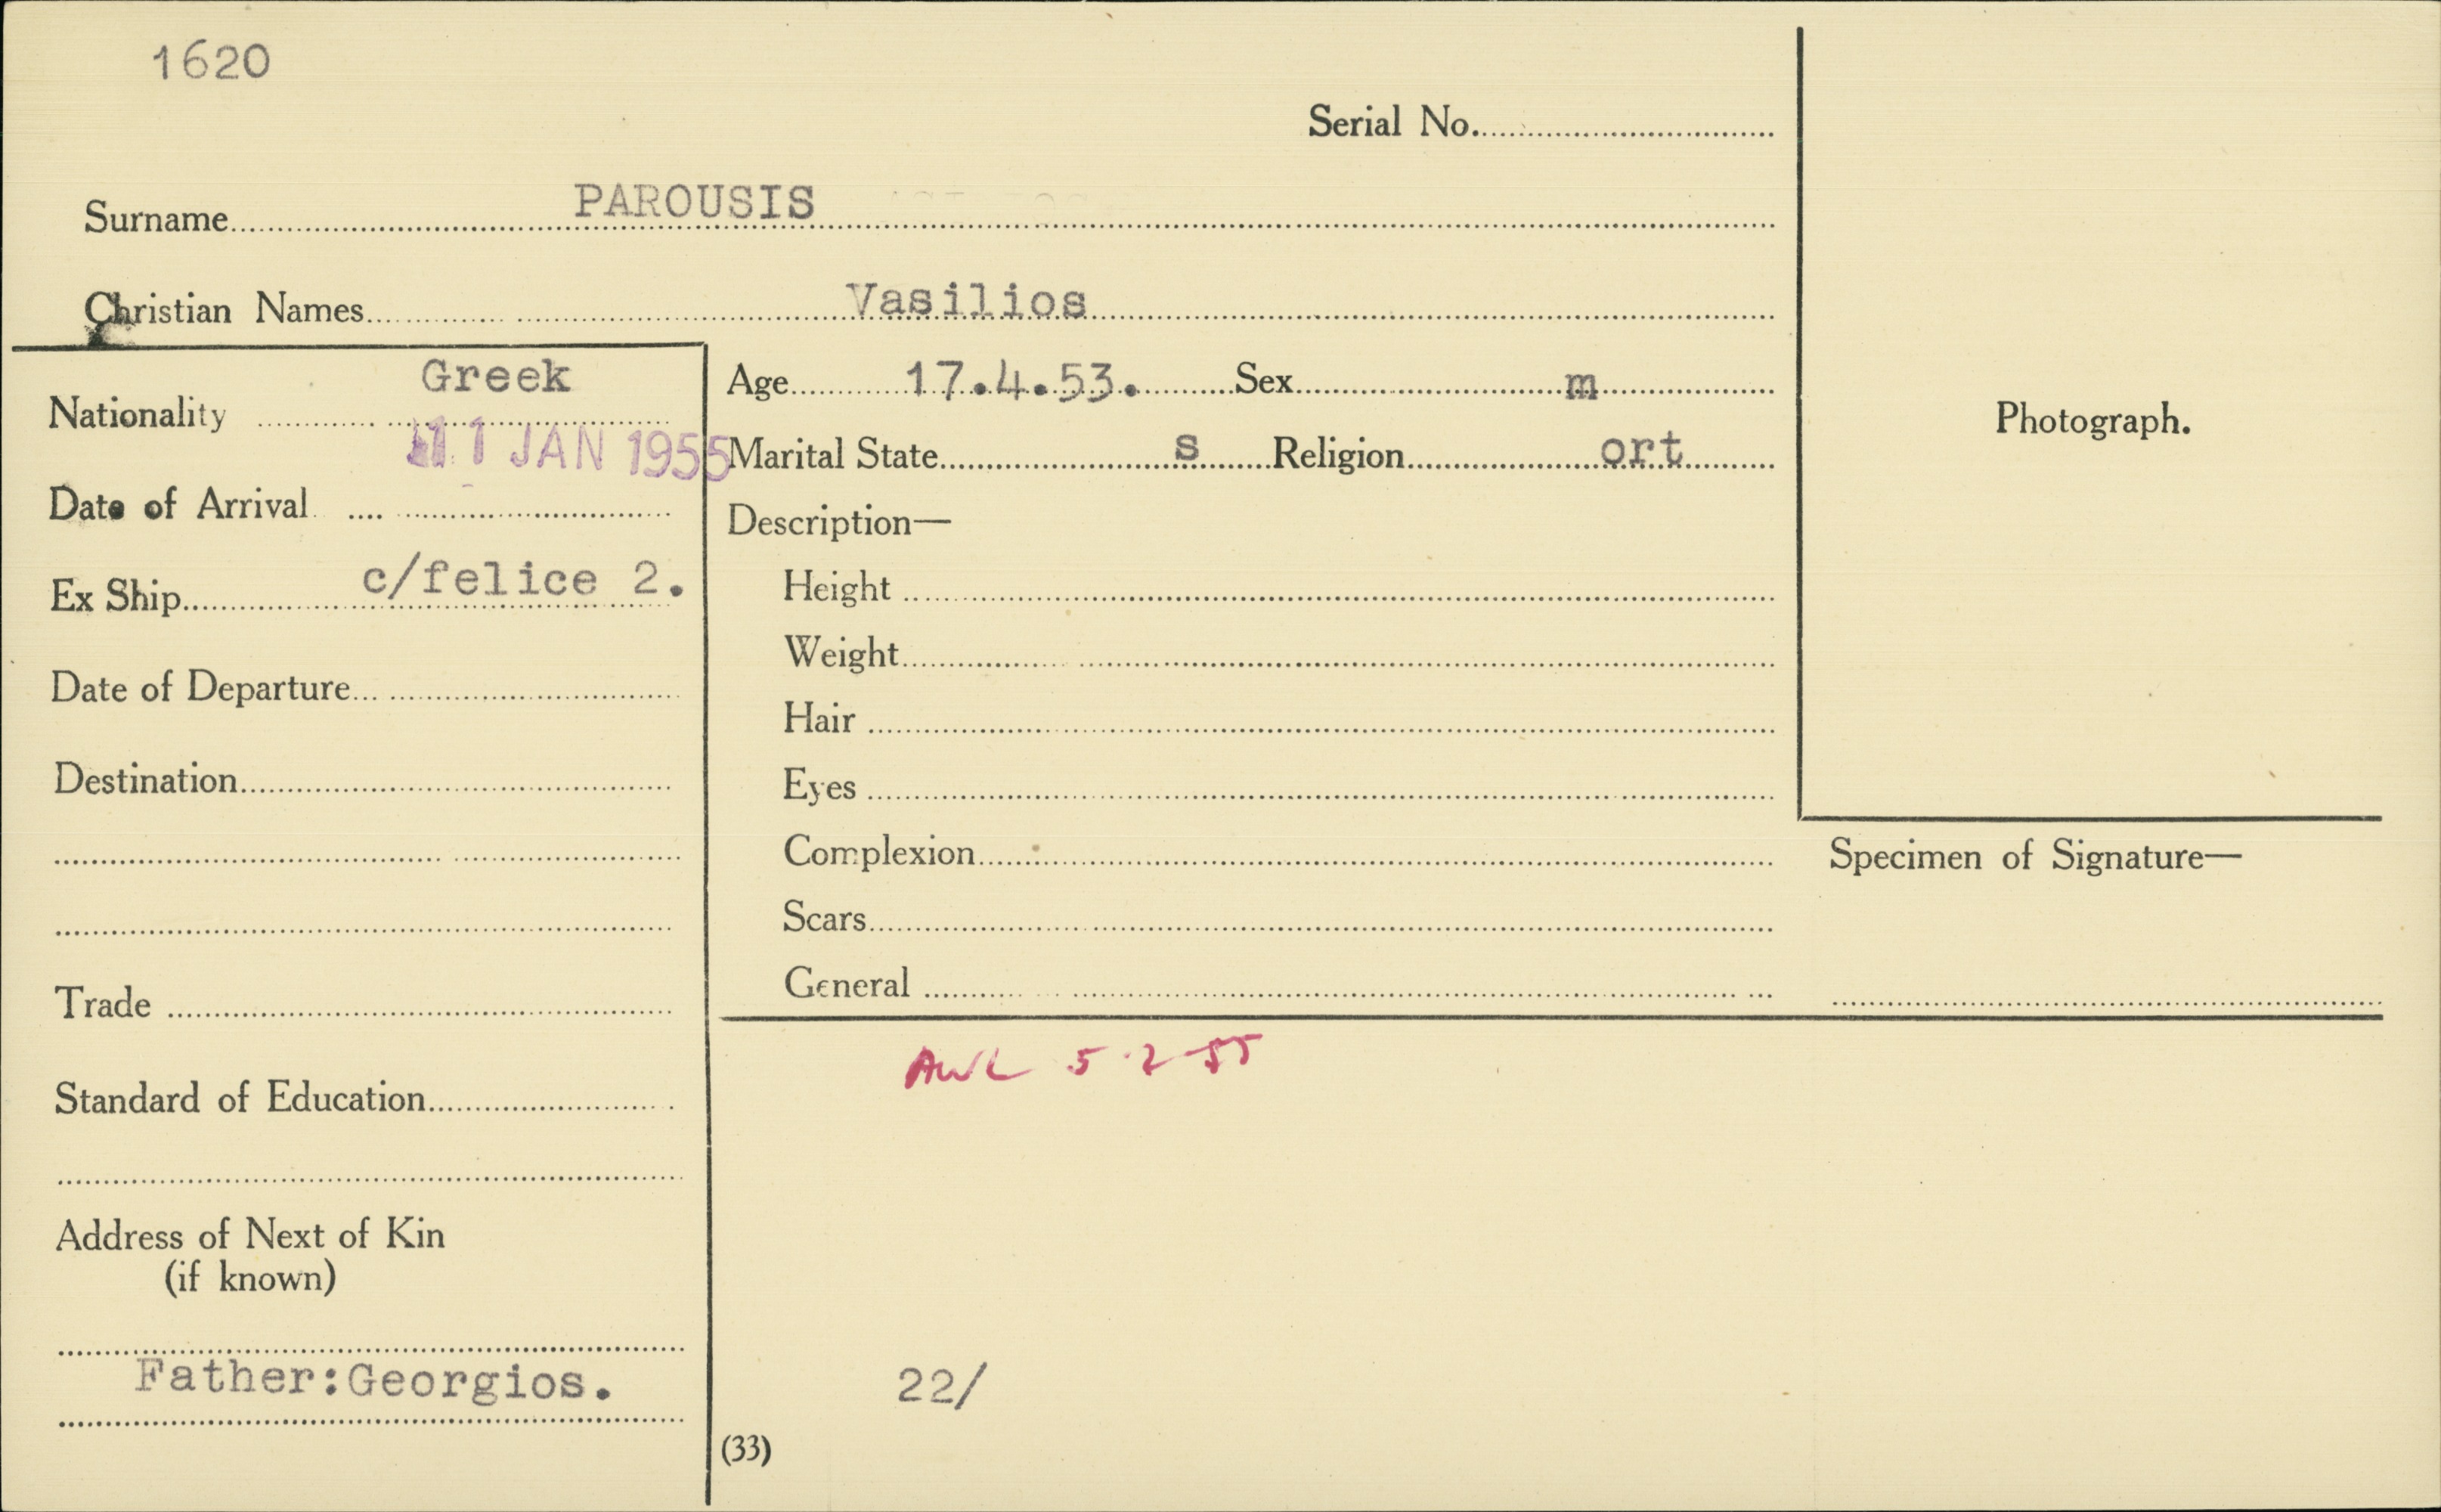 1620
Serial No.
Surname PAROUSIS
Christian Names Vasilios
Nationality Greek
11 JAN 1955
Date of Arrival
Ex Ship c/felice 2.
Date of Departure
Destination
Trade
Standard of Education
Address of Next of Kin
(if known)
Father:Georgios.
Age 17.4.53. Sex m
Marital State s Religion ort
Description—
Height
Weight
Hair
Eyes
Complexion
Scars
General
Photograph.
Specimen of Signature—
AWL 5 2 55
22/
(33)